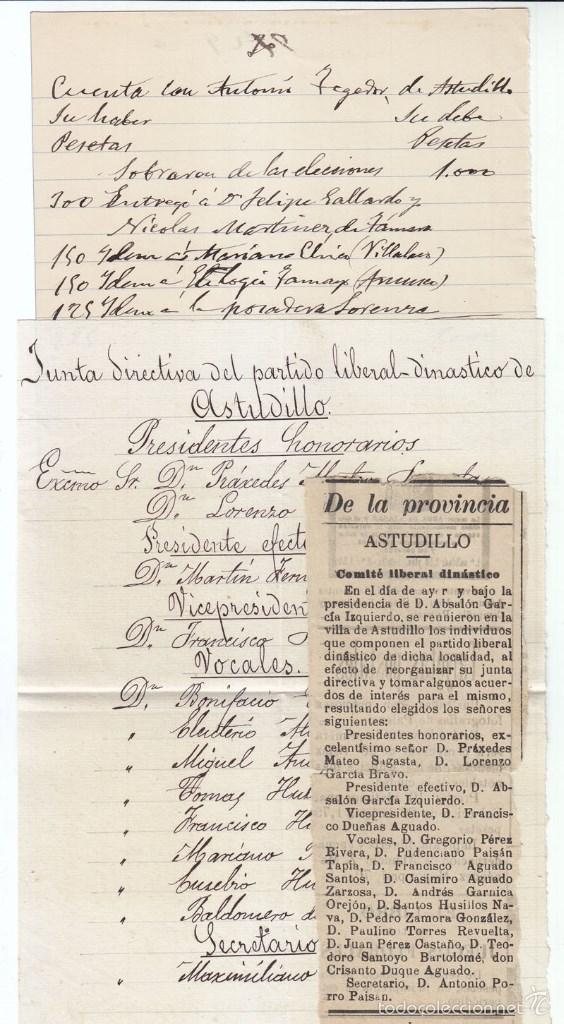 Cuenta con Antonin Tegedor, de Astudillo
Su haber Su debe
Pesetas Pesetas
Sobraron de las elecciones 1.000
300 Entregó á Dn Felipe Gallardo y
Nicolas Martinez de Támara
150 Ydem á Mariano
150 Ydem á
125 Ydem á la posadera Lorenza
Junta directiva del partido liberal-dinastico de
Astudillo.
Presidentes honorarios
Excmo Sr. Dn Práxedes
Dn Lorenzo
Presidente efect
Dn Martín Fern
Vicepresiden
Dn Francisco
Vocales.
Dn Bonifacio
" Eleuterio
" Miguel
" Tomas
" Francisco
" Mariano
" Eusebio
" Baldomero
Secretario
" Maximiliano
De la provincia
ASTUDILLO
Comité liberal dinástico
En el día de ayer y bajo la
presidencia de D. Absalón Gar-
cía Izquierdo, se reunieron en la
villa de Astudillo los individuos
que componen el partido liberal
dinástico de dicha localidad, al
efecto de reorganizar su junta
directiva y tomar algunos acuer-
dos de interés para el mismo,
resultando elegidos los señores
siguientes:
Presidentes honorarios, ex-
celentísimo señor D. Práxedes
Mateo Sagasta, D. Lorenzo
García Bravo.
Presidente efectivo, D. Ab-
salón García Izquierdo.
Vicepresidente, D. Francis-
co Dueñas Aguado.
Vocales, D. Gregorio Pérez
Rivera, D. Pudenciano Paisán
Tapia, D. Francisco Aguado
Santos, D. Casimiro Aguado
Zarzosa, D. Andrés Garnica
Orejón, D. Santos Husillos Na-
va, D. Pedro Zamora González,
D. Paulino Torres Revuelta,
D. Juan Pérez Castaño, D. Teo-
doro Santoyo Bartolomé, don
Crisanto Duque Aguado.
Secretario, D. Antonio Po-
rro Paisan.
todocoleccion.net